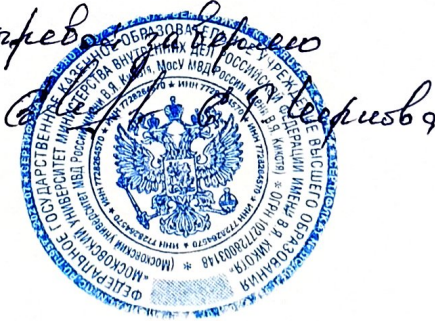 заверяю
Чернова
ФЕДЕРАЛЬНОЕ ГОСУДАРСТВЕННОЕ КАЗЕННОЕ ОБРАЗОВАТЕЛЬНОЕ УЧРЕЖДЕНИЕ ВЫСШЕГО ОБРАЗОВАНИЯ
«МОСКОВСКИЙ УНИВЕРСИТЕТ МИНИСТЕРСТВА ВНУТРЕННИХ ДЕЛ РОССИЙСКОЙ ФЕДЕРАЦИИ ИМЕНИ В.Я. КИКОТЯ» * ОГРН 1027728003148
(Московский университет МВД России имени В.Я. Кикотя, МосУ МВД России имени В.Я. Кикотя)
* ИНН 7728264570 * ИНН 7728264570 * ИНН 7728264570 * ИНН 7728264570